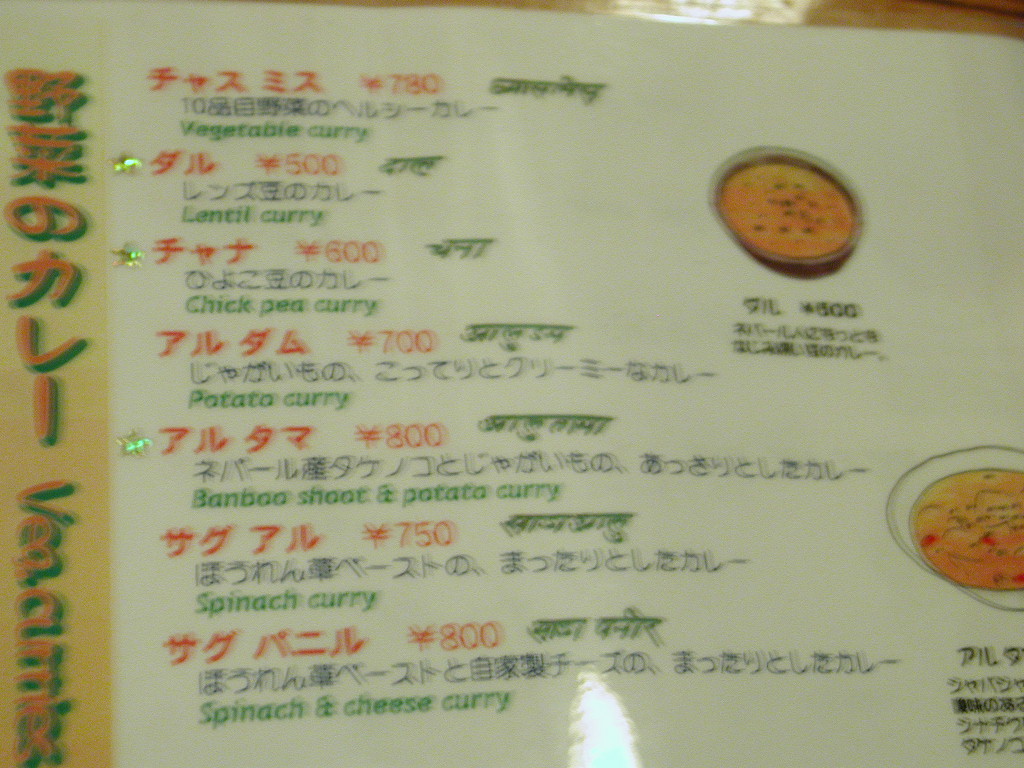 野菜のカレー
チャス ミス ¥780
10品目野菜のヘルシーカレー
Vegetable curry
ダル ¥500 दाल
レンズ豆のカレー
Lentil curry
チャナ ¥600 चना
ひよこ豆のカレー
Chick pea curry
アル ダム ¥700 आलु दम
じゃがいもの、こってりとクリーミーなカレー
Potato curry
アル タマ ¥800 आलु तामा
ネパール産タケノコとじゃがいもの、あっさりとしたカレー
Banboo shoot & potato curry
サグ アル ¥750 साग आलु
ほうれん草ペーストの、まったりとしたカレー
Spinach curry
サグ パニル ¥800 साग पनीर
ほうれん草ペーストと自家製チーズの、まったりとしたカレー
Spinach & cheese curry
ダル ¥500
ネパール人にもっとも
なじみ深い豆のカレー。
アル タ
シャバシャ
シナチク
タケノコ